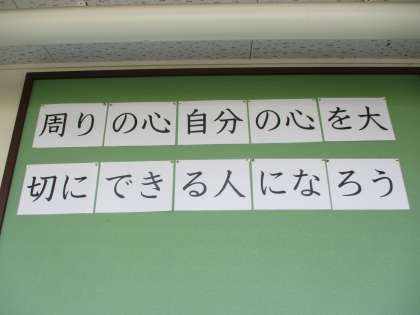 周りの心自分の心を大
切にできる人になろう